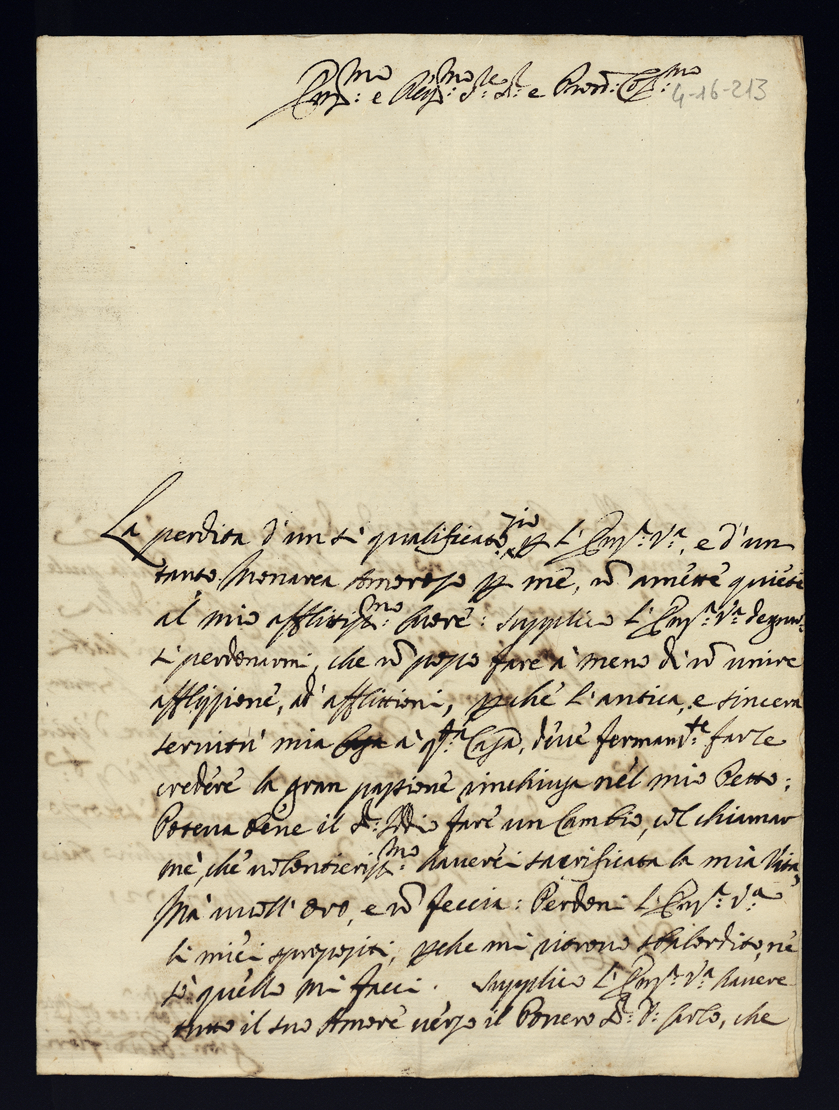 Em.mo e Rev.mo S.re S.r e Pron: Col.mo
4-16-213
La perdita d'un sì qualificato zio p L'Em.a V.a, e d'un
tanto Monarca Amoroso p me, nõ amette quiete
al mio afflitiss.mo Cuore: Supplico L'Em.a V.a degnar
si perdonarmi, che nõ posso fare à meno di nõ unire
afflissione, ad afflittioni, pche l'antica, e sincera
servitù mia à q.ta Casa, deve fermam.te farle
credere la gran passione rinchiusa nel mio Petto:
Poteva bene il S.r Iddio fare un Cambio, col chiamar
me, che volentieriss.mo haverei sacrificata la mia Vita,
Mà vuoll' oro, e nõ feccia: Perdoni L'Em.a V.a
li miei spropositi, pche mi ritrovo sbalordito, ne
sò quello mi facci. Supplico L'Em.a V.a havere
tutto il suo Amore verso il Povero S.r D. Carlo, che